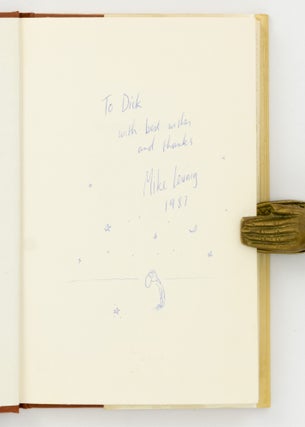 To Dick
with best wishes
and thanks
Mike Leunig
1987